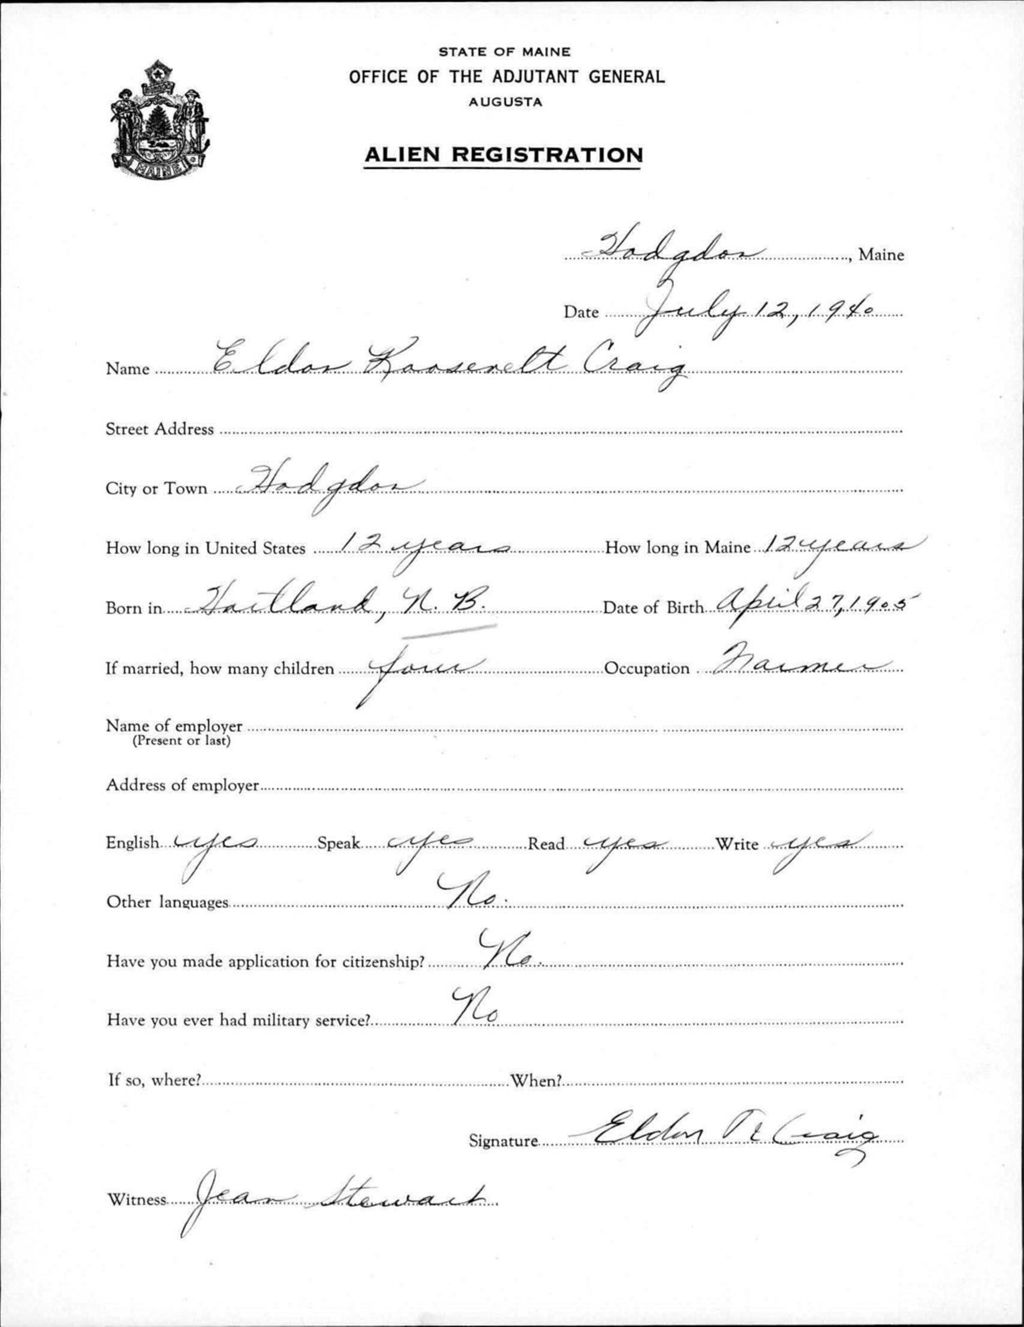 STATE OF MAINE
OFFICE OF THE ADJUTANT GENERAL
AUGUSTA
ALIEN REGISTRATION
MAINE
Hodgdon, Maine
Date July 12, 1940
Name Eldon Roosevelt Craig
Street Address
City or Town Hodgdon
How long in United States 12 years How long in Maine 12 years
Born in Hartland, N. B. Date of Birth April 27, 1905
If married, how many children four Occupation Farmer
Name of employer
(Present or last)
Address of employer
English yes Speak yes Read yes Write yes
Other languages No.
Have you made application for citizenship? No.
Have you ever had military service? No
If so, where? When?
Signature Eldon R Craig
Witness Jean Stewart